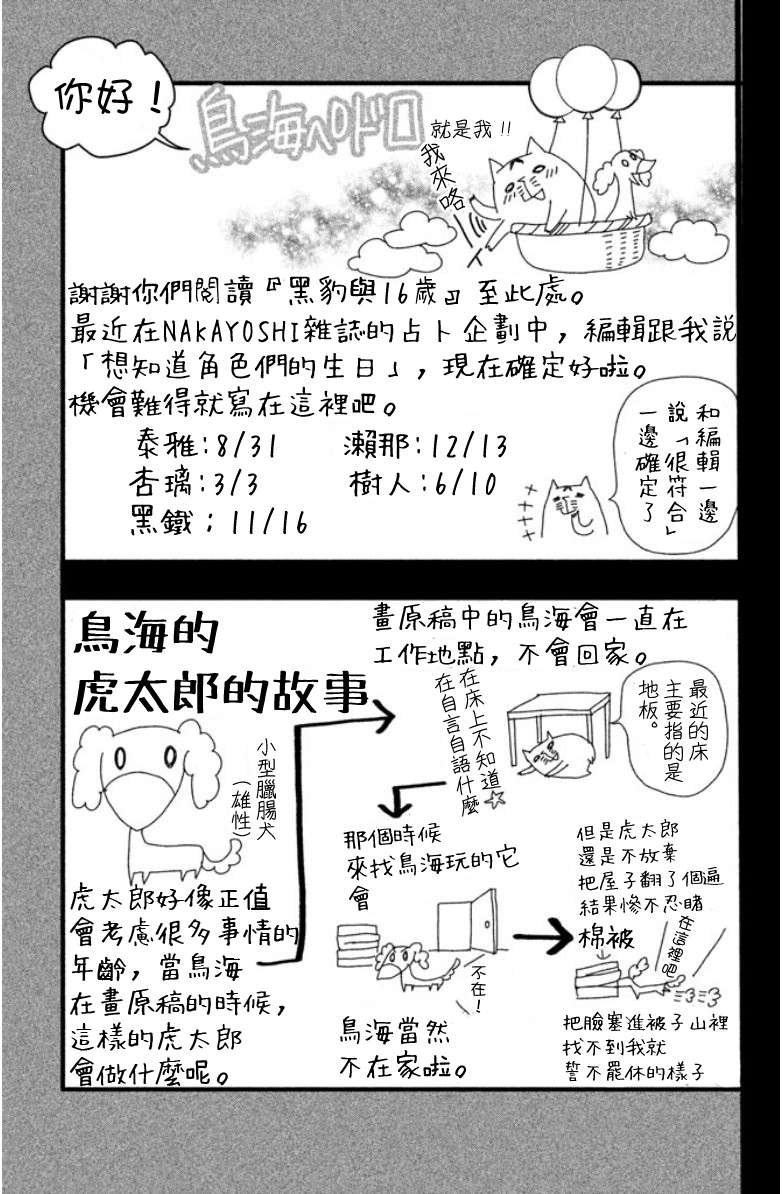 你好！
鳥海ペドロ
就是我!!
我來咯
謝謝你們閱讀『黑豹與16歲』至此處。
最近在NAKAYOSHI雜誌的占卜企劃中，編輯跟我說
「想知道角色們的生日」，現在確定好啦。
機會難得就寫在這裡吧。
泰雅：8/31
瀨那：12/13
杏璃：3/3
樹人：6/10
黑鐵；11/16
和編輯一邊
說「很符合」
一邊確定了
鳥海的
虎太郎的故事
小型臘腸犬
（雄性）
虎太郎好像正值
會考慮很多事情的
年齡，當鳥海
在畫原稿的時候，
這樣的虎太郎
會做什麼呢。
畫原稿中的鳥海會一直在
工作地點，不會回家。
在床上不知道
在自言自語什麼☆
最近的床
主要指的是
地板。
那個時候
來找鳥海玩的它
會
不在！
鳥海當然
不在家啦。
但是虎太郎
還是不放棄
把屋子翻了個遍
結果慘不忍睹
棉被
在這裡吧
把臉塞進被子山裡
找不到我就
誓不罷休的樣子